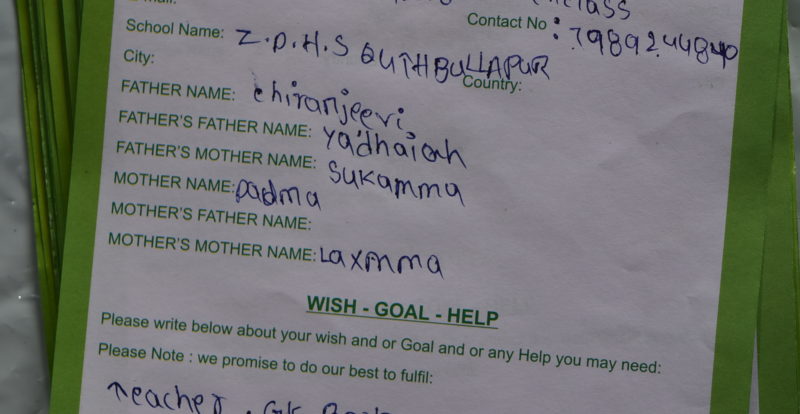 Contact No : 7989244840
School Name: Z.P.H.S QUTHBULLAPUR
City: Country:
FATHER NAME: chiranjeevi
FATHER'S FATHER NAME: Yadhaiah
FATHER'S MOTHER NAME: Sukamma
MOTHER NAME: padma
MOTHER'S FATHER NAME:
MOTHER'S MOTHER NAME: Laxmma
WISH - GOAL - HELP
Please write below about your wish and or Goal and or any Help you may need:
Please Note : we promise to do our best to fulfil:
Teacher